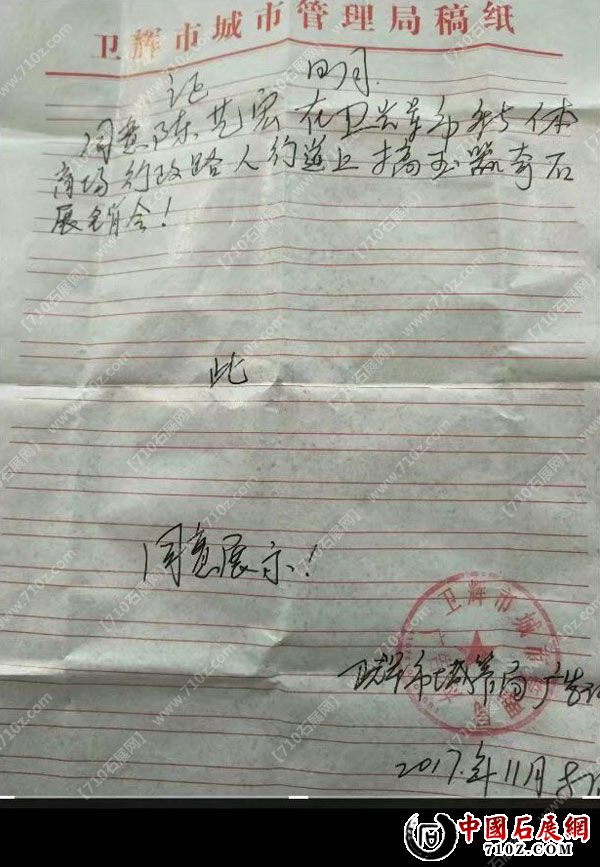 卫辉市城市管理局稿纸
证 明
同意陈艺宏在卫辉市新华体
商场行政路人行道上搞玉器奇石
展销会！
此
同意展示！
卫辉市城
卫辉市城管局广告
2017年11月
中國石展網
710z.COM
【710石展网】
www.710z.com